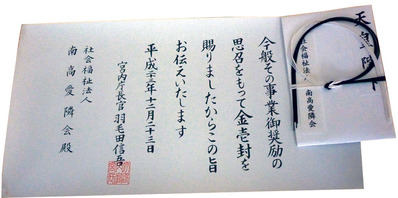 今般その事業御奨励の
思召をもって金壱封を
賜りましたからこの旨
お伝えいたします
平成二十三年十二月二十三日
宮内庁長官 羽毛田信吾
社会福祉法人
南高愛隣会殿
天皇陛下
社会福祉法人
南高愛隣会